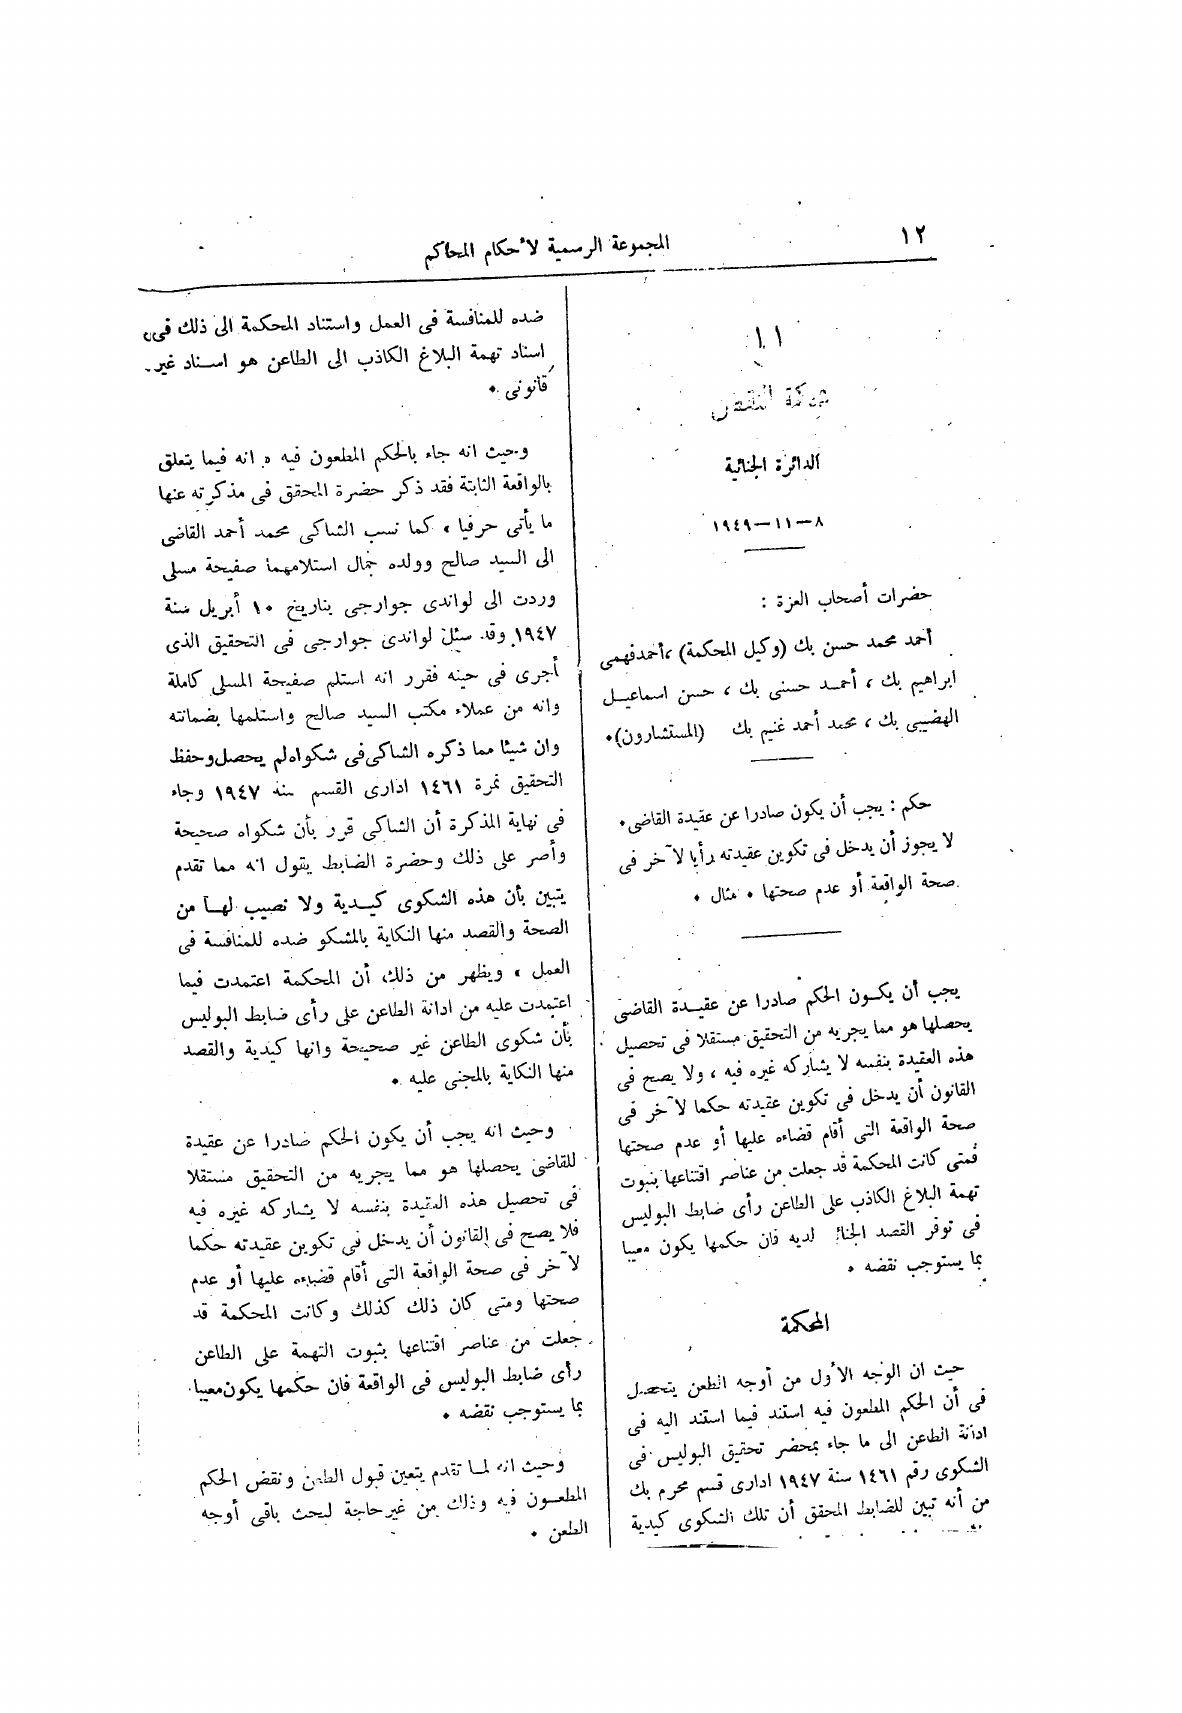 ١٢
المجموعة الرسمية لأحكام المحاكم
١١
محكمة النقض
الدائرة الجنائية
٨—١١—١٩٤٩
حضرات أصحاب العزة :
أحمد محمد حسن بك (وكيل المحكمة) ،أحمدفهمى
ابراهيم بك ، أحمد حسنى بك ، حسن اسماعيل
الهضيبى بك ، محمد أحمد غنيم بك (المستشارون)٠
حكم : يجب أن يكون صادرا عن عقيدة القاضى٠
لا يجوز أن يدخل فى تكوين عقيدته رأيا لآخر فى
صحة الواقعة أو عدم صحتها ٠ مثال ٠
يجب أن يكون الحكم صادرا عن عقيدة القاضى
يحصلها هو مما يجريه من التحقيق مستقلا فى تحصيل
هذه العقيدة بنفسه لا يشاركه غيره فيه ، ولا يصح فى
القانون أن يدخل فى تكوين عقيدته حكما لآخر فى
صحة الواقعة التى أقام قضاءه عليها أو عدم صحتها
فمتى كانت المحكمة قد جعلت من عناصر اقتناعها بثبوت
تهمة البلاغ الكاذب على الطاعن رأى ضابط البوليس
فى توفر القصد لديه فان حكمها يكون معيبا
بما يستوجب نقضه ٠
المحكمة
حيث ان الوجه الأول من أوجه الطعن يتحصل
فى أن الحكم المطعون فيه استند فيما استند اليه فى
ادانة الطاعن الى ما جاء بمحضر تحقيق البوليس فى
الشكوى رقم ١٤٦١ سنة ١٩٤٧ ادارى قسم محرم بك
من أنه تبين للضابط المحقق أن تلك الشكوى كيدية
ضده للمنافسة فى العمل واستناد المحكمة الى ذلك فى
اسناد تهمة البلاغ الكاذب الى الطاعن هو اسناد غير
قانونى ٠
وحيث انه جاء بالحكم المطعون فيه « انه فيما يتعلق
بالواقعة الثابتة فقد ذكر حضرة المحقق فى مذكرته عنها
ما يأتى حرفيا « كما نسب الشاكى محمد أحمد القاضى
الى السيد صالح وولده جمال استلامهما صفيحة مسلى
وردت الى لواندى جوارجى بتاريخ ١٠ أبريل سنة
١٩٤٧ وقد سئل لواندى جوارجى فى التحقيق الذى
أجرى فى حينه فقرر انه استلم صفيحة المسلى كاملة
وانه من عملاء مكتب السيد صالح واستلمها بضمانته
وان شيئا مما ذكره الشاكى فى شكواه لم يحصل وحفظ
التحقيق نمرة ١٤٦١ ادارى القسم سنه ١٩٤٧ وجاء
فى نهاية المذكرة أن الشاكى قرر بأن شكواه صحيحة
وأصر على ذلك وحضرة الضابط يقول انه مما تقدم
يتبين بأن هذه الشكوى كيدية ولا نصيب لها من
الصحة والقصد منها النكاية بالمشكو ضده للمنافسة فى
العمل » ويظهر من ذلك أن المحكمة اعتمدت فيما
اعتمدت عليه من ادانة الطاعن على رأى ضابط البوليس
بأن شكوى الطاعن غير صحيحة وانها كيدية والقصد
منها النكاية بالمجنى عليه ٠
وحيث انه يجب أن يكون الحكم صادرا عن عقيدة
للقاضى يحصلها هو مما يجريه من التحقيق مستقلا
فى تحصيل هذه العقيدة بنفسه لا يشاركه غيره فيه
فلا يصح فى القانون أن يدخل فى تكوين عقيدته حكما
لآخر فى صحة الواقعة التى أقام قضاءه عليها أو عدم
صحتها ومتى كان ذلك كذلك وكانت المحكمة قد
جعلت من عناصر اقتناعها بثبوت التهمة على الطاعن
رأى ضابط البوليس فى الواقعة فان حكمها يكون معيبا
بما يستوجب نقضه ٠
وحيث انه لما تقدم يتعين قبول الطعن ونقض الحكم
المطعون فيه وذلك من غير حاجة لبحث باقى أوجه
الطعن ٠